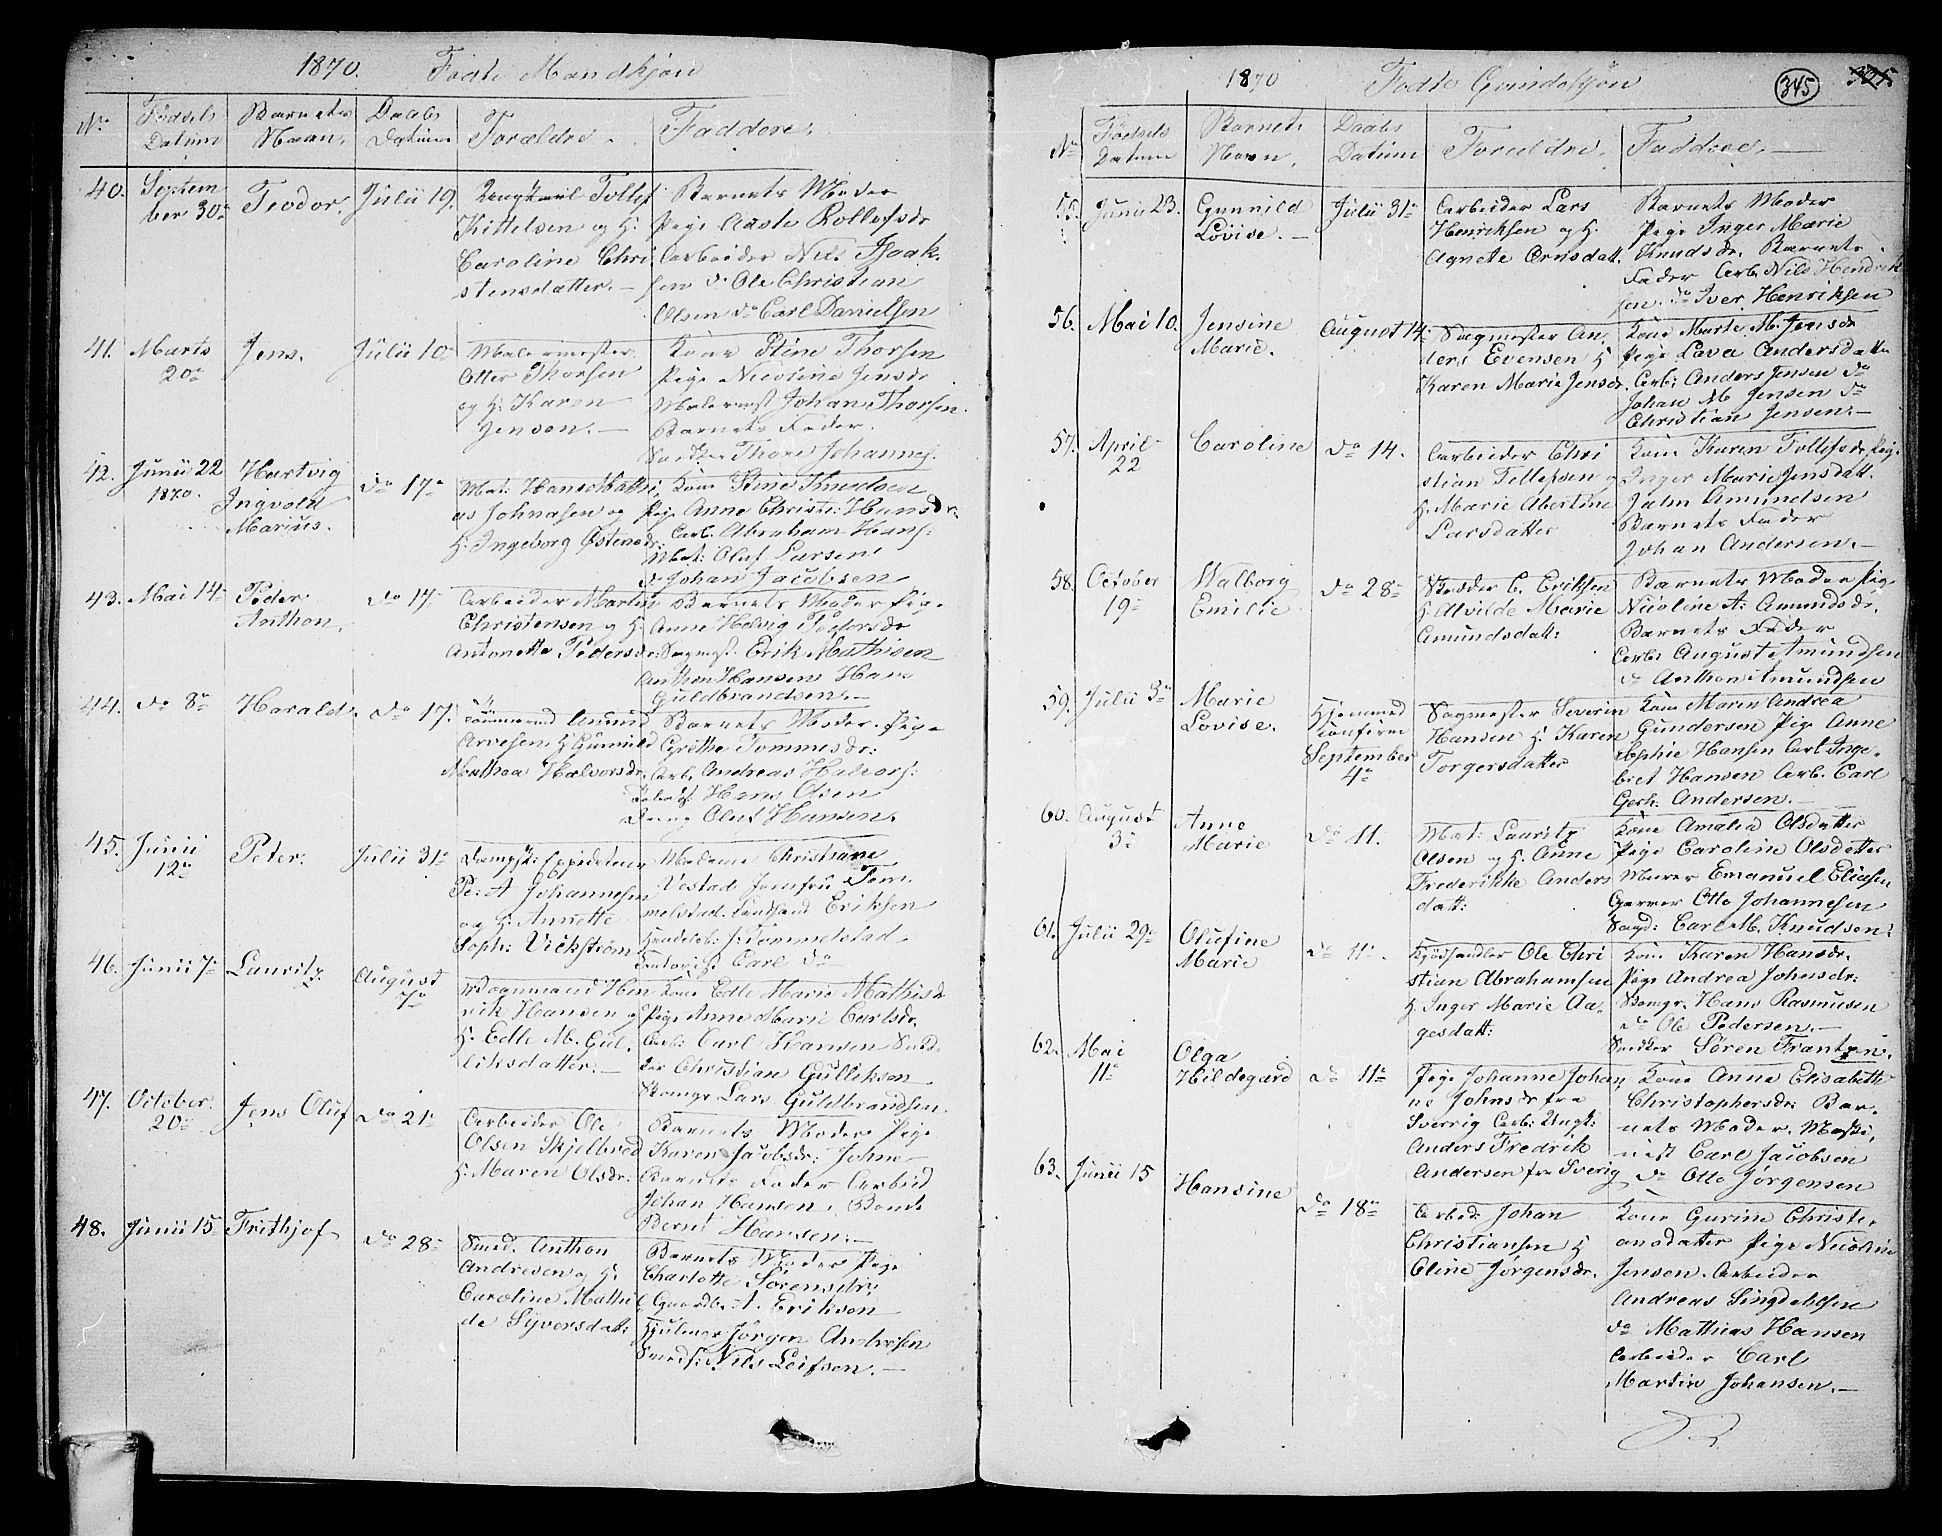 1870. Fødte Mandkjøn
No Fødsels Datum Barnets Navn. Daabs Datum Forældre. Faddere.
40. Septem
ber 30te
Teodor
Julii 19.
Tollef
Kittelsen og H:
Caroline Chri
stensdatter. —
Barnets Moder
Pige Aaste Rollefsdr
Arbeider Nils Isaak
sen do Ole Christian
Olsen do Carl Danielsen
41. Marts
20de
Jens.
Julii 10de
Malermester
Otter Thorsen
og H: Karen
Jensen. —
Kone Stine Thorsen
Pige Nicoline Jensdr
Malermest Johan Thorsen.
Barnets Fader.
Snedker Thore Johannes.
42. Junii 22
1870.
Hartvig
Ingvold
Marius.
do 17de
Mat: Hans Mathi
as Johnasen og
H: Ingeborg Østensdr:
Kone Stine Knudsen
Pige Anne Christi: Hansdr:
Arb. Abraham Hans:
Mat: Oluf Larsen
do Johan Jacobsen
43. Mai 14de
Peder
Anthon.
do 17de
Arbeider Martin
Christensen og H:
Antonette Pedersdr:
Barnets Moder Pige
Anne Helvig Pedersdr
Sagmest. Erik Mathisen
Anthon Hansen Hans
Guldbrandsen. —
44. do 8de
Harald.
do 17.
Tømmermd Amund
Arvesen H Gunnild
Mathea Halvorsdr.
Barnets Moder. Pige
Grethe Tommesdr:
Arb. Andreas Halvors:
Hans Olsen
Dreng Oluf Hansen.
45. Junii
12te
Peter.
Julii 31te
Dampsk: Expiditeur
Pe: A Johannesen
og H: Annette
Soph: Vickstrøm
Madame Christiane
Vestad Jomfru Tom
melstad. Eriksen
Handelsb: J: Tommelstad
Carl do
46. Junii 7de
Lauritz
August
7de
Vognmand Hen
rik Hansen og
H: Edle M. Gul
liksdatter. —
Kone Edle Marie Mathisdr
Pige Anne Marie Carlsdr.
Arb: Carl Hansen Sned
ker Christian Gulliksen
Skomgr Lars Guldbrandsen
47. October.
20de
Jens Oluf
do 21de
Arbeider Ole
Olsen Skjelbred
H: Maren Olsdr:
Barnets Moder Pige
Karen Jacobsdr: Johne
Barnets Fader Arbeid
Johan Hansen, Bonde
Bernt Hansen. —
48. Junii 15de
Frithjof
do 28de
Smed. Anthon
Andresen og H:
Caroline Mathil
de Syversdatt:
Barnets Moder Pige
Charlotte Sørensdr:
Gaardbr: A. Eriksen
Hjulmgr Jørgen Andresen
Smeds: Nils Leifsen. —
1870 Fødte Qvindekjøn
345
No Fødsels Datum Barnets Navn. Daabs Datum Forældre. Faddere. —
55. Junii 23.
Gunnild
Lovise. —
Julii 31te
Arbeider Lars
Henriksen og H.
Agnete Arnsdatt.
Barnets Moder
Pige Inger Marie
Knudsdr. Barnets
Fader Arb. Nils Hendrik
sen. do Iver Henriksen
56. Mai 10.
Jensine
Marie.
August 14.
Sagmester An
ders Evensen H
Karen Marie Jensdr.
Kone Marte M. Jensdr
Pige Lava Andersdatter
Arb: Anders Jensen do
Johan M Jensen do
Christian Jensen. —
57. April
22
Caroline
do 14.
Arbeider Chri
stian Tellefsen og
H. Marie Abertine
Larsdatter
Kone Karen Tollefsdr Pige
Inger Marie Jensdatt.
John Amundsen
Barnets Fader
Johan Andersen. —
58. October
19de
Walborg
Emilie
do 28de
Skræder C. Eriksen
H Alvilde Marie
Amundsdatt:
Barnets Moder Pige
Nicoline A: Amundsdr.
Barnets Fader
Arb: August Amundsen
do Anthon Amundsen
59. Julii 3de
Marie
Lovise.
Hjemmed
Confirm
September
4de
Sagmester Severin
Hansen H. Karen
Torgersdatter
Kone Maren Andrea
Gundersen Pige Anne
Sophie Hansen Arb Inge
bret Hansen Arb. Carl
Gerh. Andersen. —
60. August
3de
Anne
Marie
do 11.
Mat: Lauritz
Olsen og H. Anne
Frederikke Anders
datt:
Kone Amalia Olsdatter
Pige Caroline Olsdatter
Murer Emanuel Eliasen
Garver Otto Johannesen
Smd: Carl M. Knudsen:
61. Julii 29de
Olufine
Marie
do 11te.
Kjødhandler Ole Chri
stian Abrahamsen
H. Inger Marie Aa
gesdatt:
Kone Karen Hansdr.
Pige Andrea Johnsdr:
Skomgr. Hans Rasmusen
do Ole Pedersen. —
Snedker Søren Frantzen.
62. Mai
11te
Olga
Hildegard
do 11te
Pige Johanne Johan
ne Johnsdr fra
Sverrig Arb: Ungk:
Anders Fredrik
Andersen fra Sverig
Kone Anne Elisabeth
Christophersdr: Bar
nets Moder. Maski
nist Carl Jacobsen
do Otto Jørgensen
63. Junii 15
Hansine
do 18de
Arbeid: Johan
Christiansen H
Oline Jørgensdr.
Kone Gurine Christi
ansdatter Pige Nicoline
Jensen. Arbeider
Andreas Singdalsen
do Mathias Hansen
Arbeider Carl
Martin Johansen. —